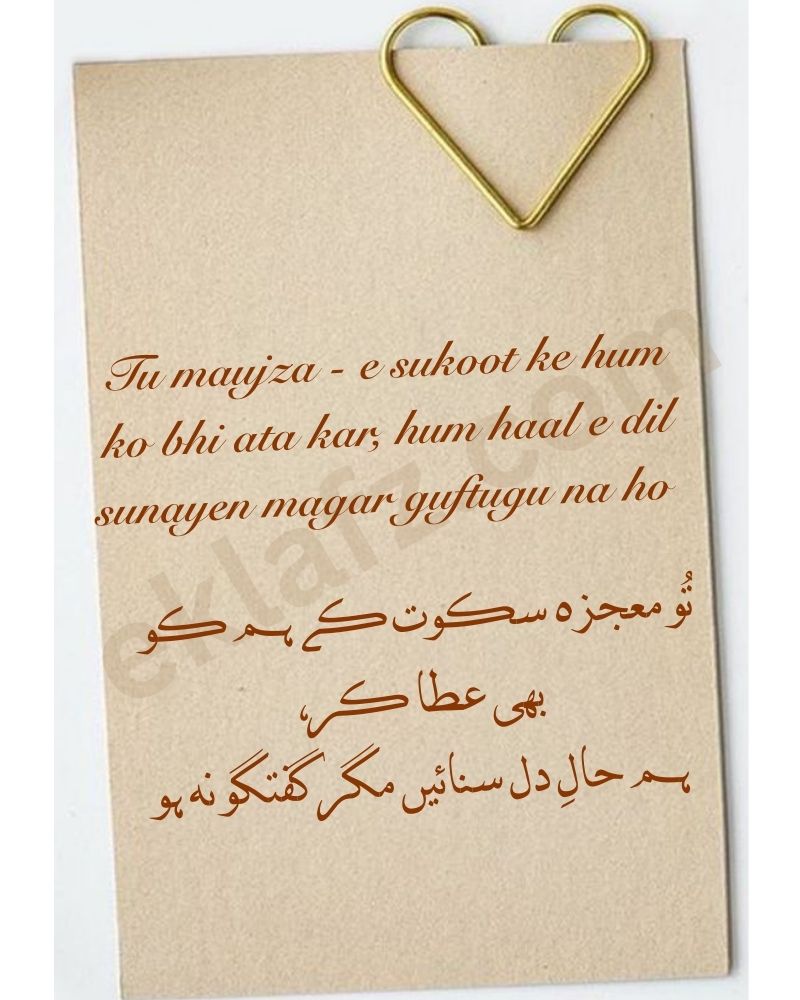 Tu maujza - e sukoot ke hum
ko bhi ata kar, hum haal e dil
sunayen magar guftugu na ho
تُو معجزہ سکوت کے ہم کو
بھی عطا کر،
ہم حالِ دل سنائیں مگر گفتگو نہ ہو
eklafz.com